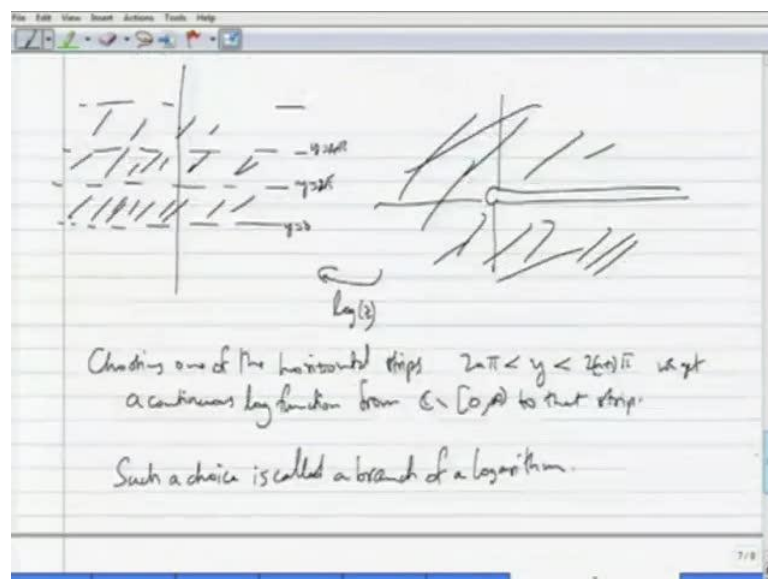 File Edit View Insert Actions Tools Help
y=4π
y=2π
y=0
log(z)
Choosing one of the horizontal strips 2nπ < y < 2(n+1)π we get
a continuous log function from ℂ \ [0,∞) to that strip.
Such a choice is called a branch of a logarithm.
7/8